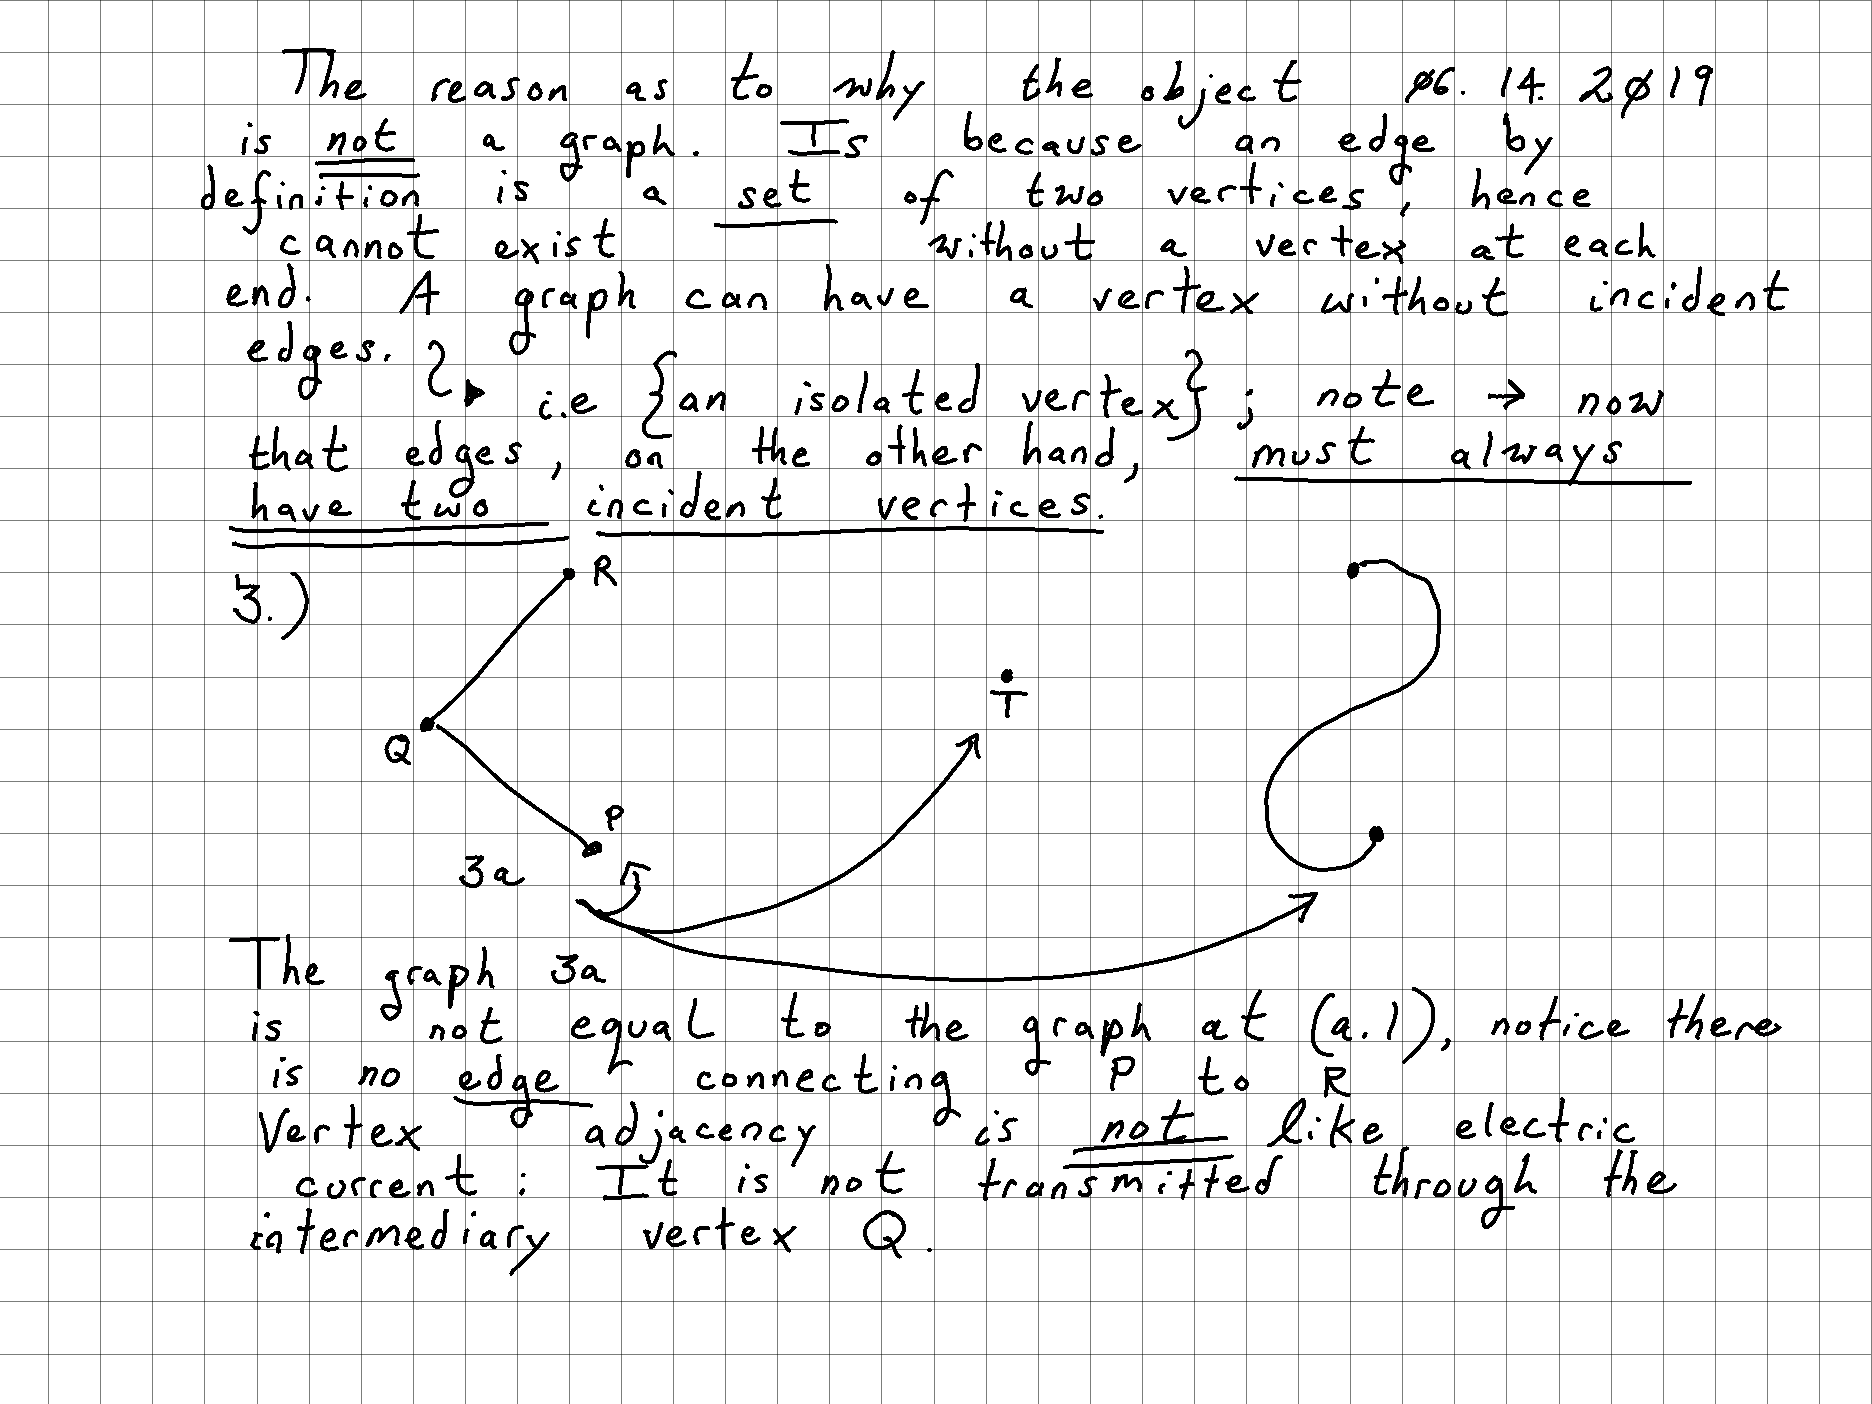 The reason as to why the object ø6. 14. 2ø19
is not a graph. Is because an edge by
definition is a set of two vertices, hence
cannot exist without a vertex at each
end. A graph can have a vertex without incident
edges.
i.e {an isolated vertex} ; note → now
that edges, on the other hand, must always
have two incident vertices.
R
3.)
T
Q
P
3a
The graph 3a
is not equal to the graph at (a.1), notice there
is no edge connecting P to R
Vertex adjacency is not like electric
current : It is not transmitted through the
intermediary vertex Q.